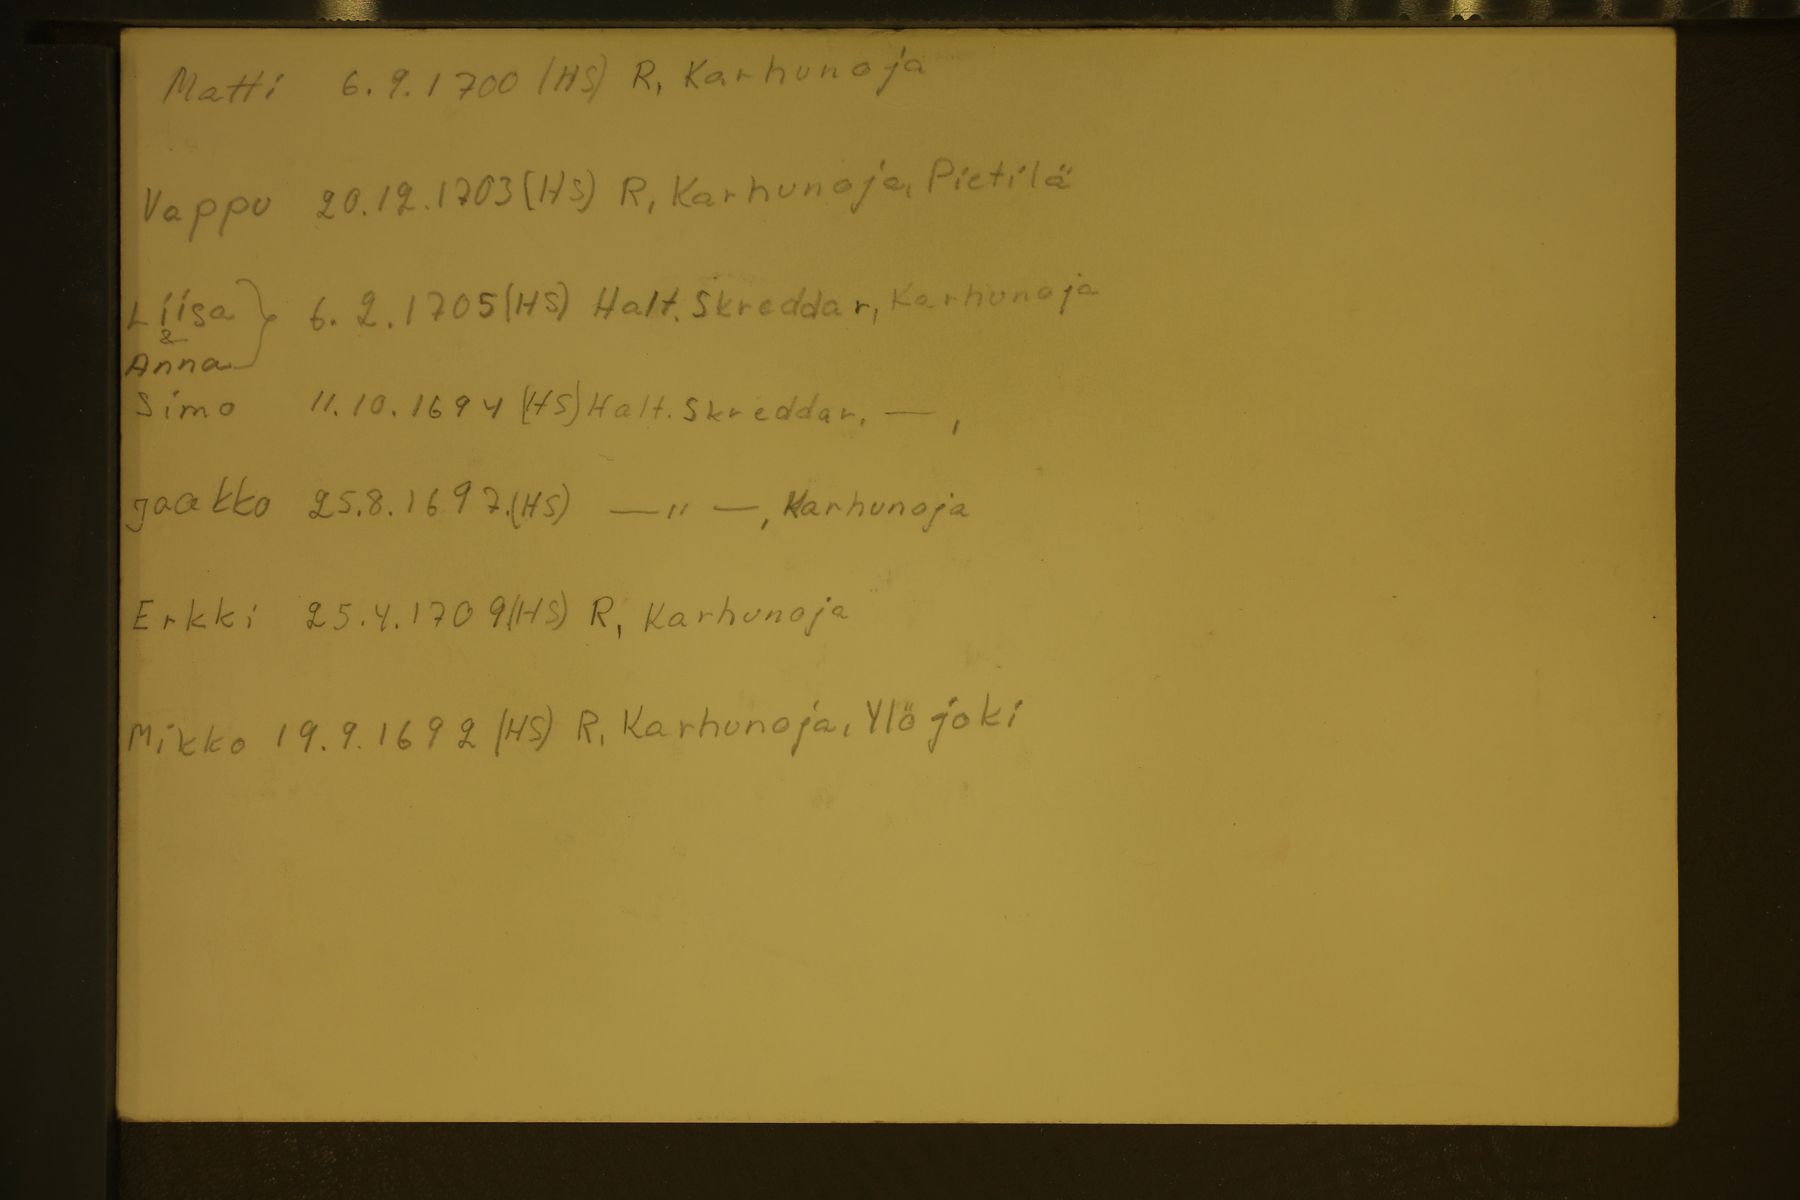 Matti 6.9.1700 (HS) R, Karhunoja
Vappu 20.12.1703 (HS) R, Karhunoja, Pietilä
Liisa } 6.2.1705 (HS) Halt. Skreddar, Karhunoja
&
Anna
Simo 11.10.1694 (HS) Halt. Skreddar, — ,
Jaakko 25.8.1697. (HS) — " —, Karhunoja
Erkki 25.4.1709 (HS) R, Karhunoja
Mikko 19.9.1692 (HS) R, Karhunoja, Ylöjoki